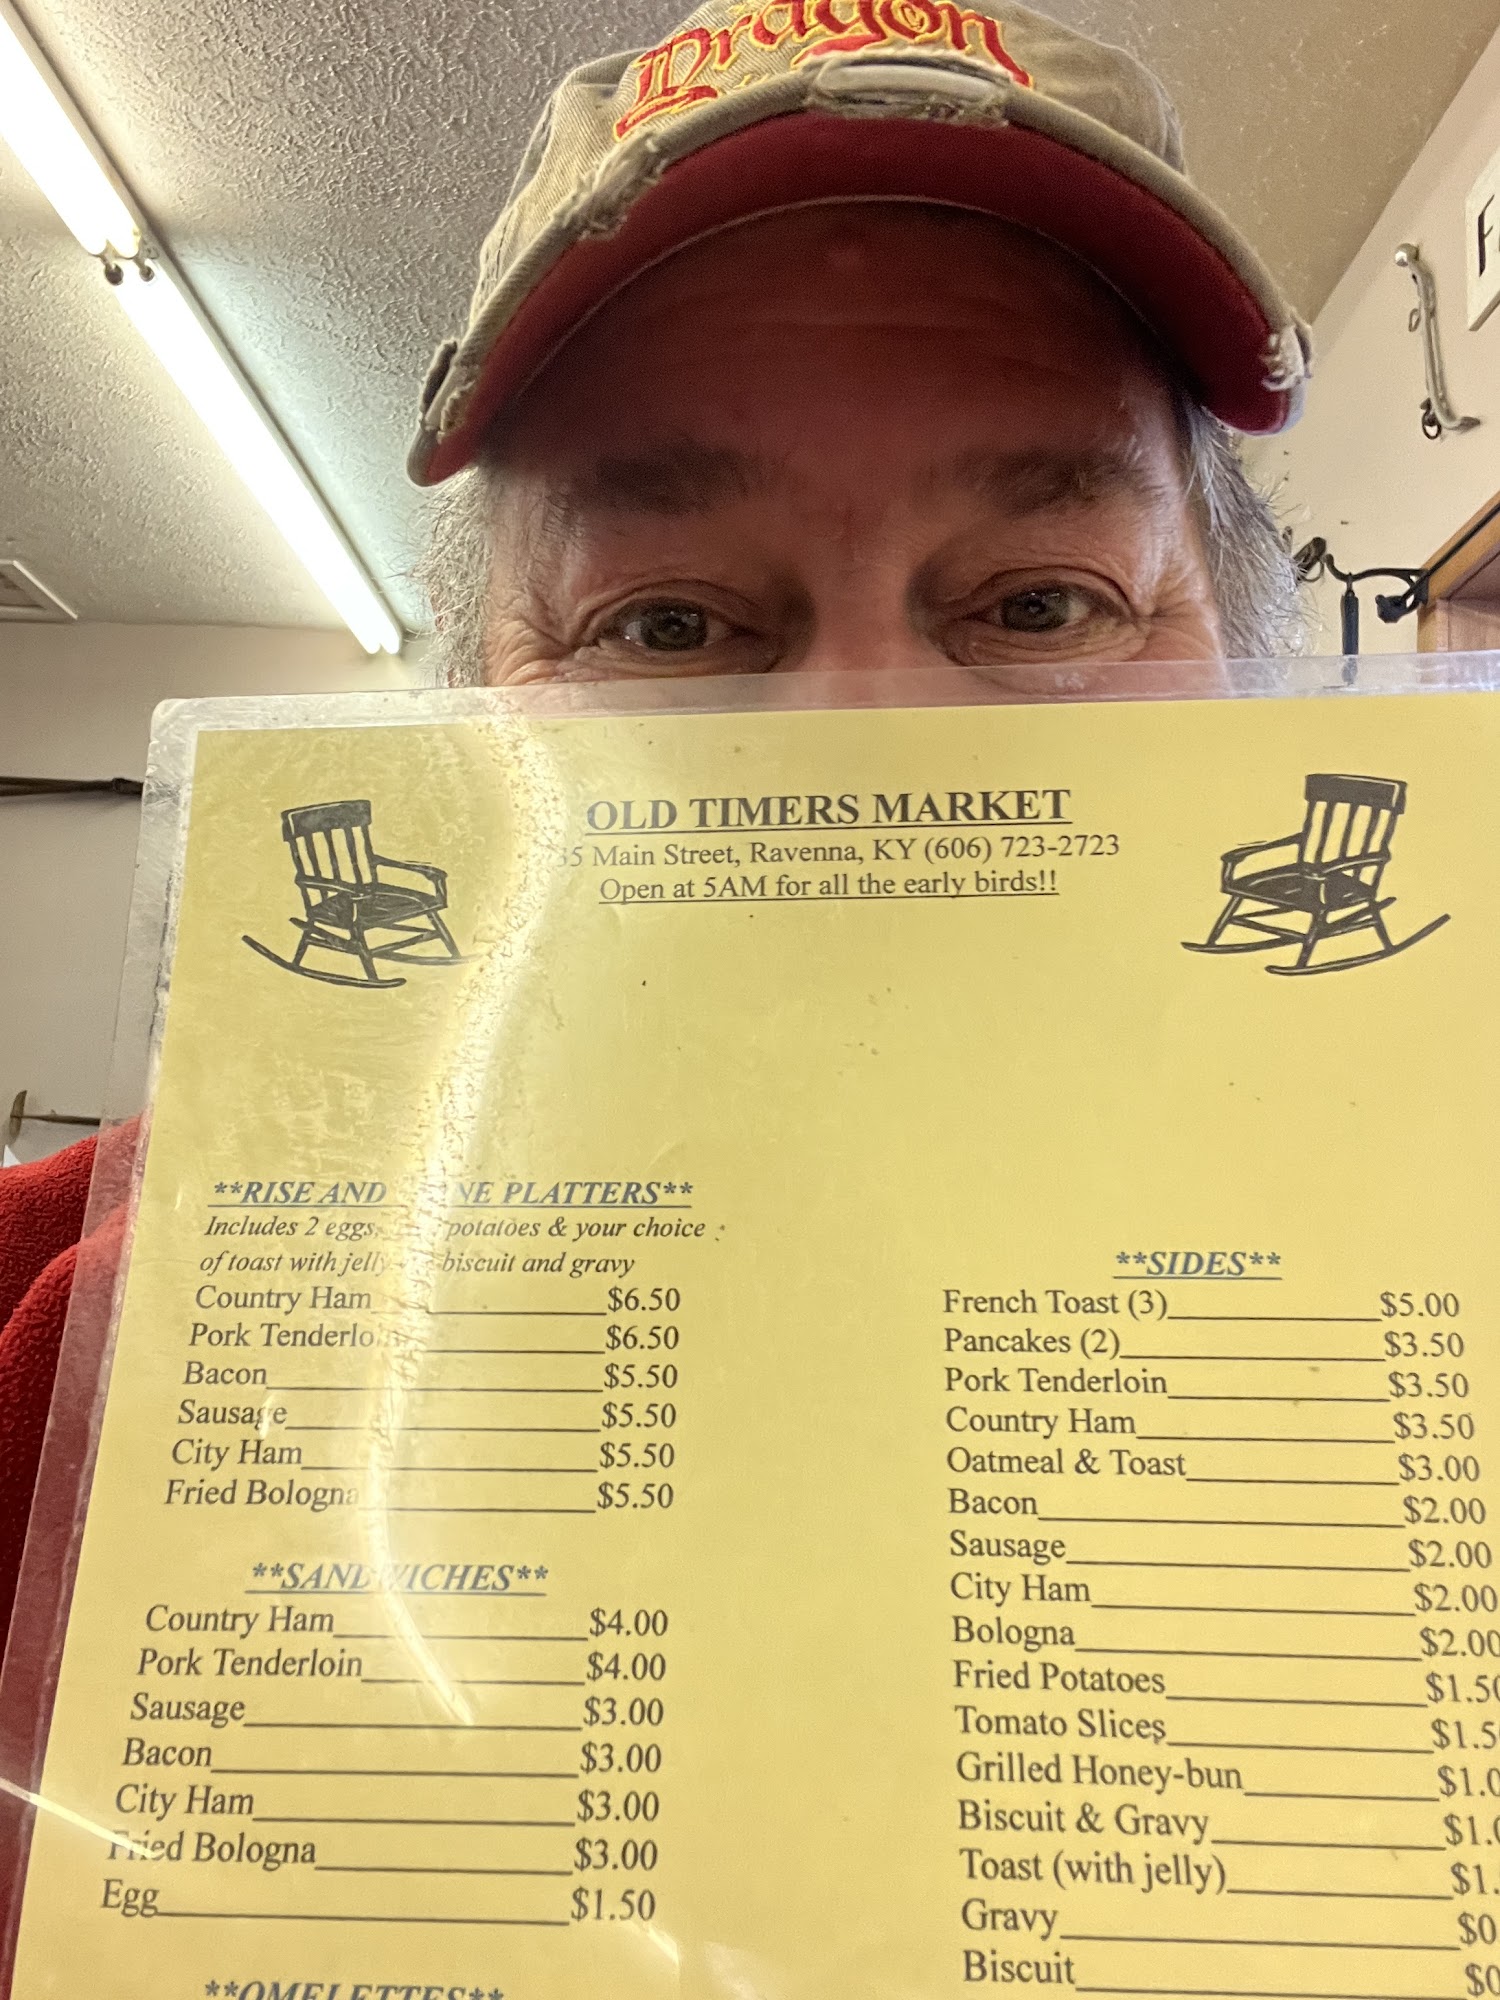 Dragon
F
OLD TIMERS MARKET
35 Main Street, Ravenna, KY (606) 723-2723
Open at 5AM for all the early birds!!
**RISE AND NE PLATTERS**
Includes 2 eggs, potatoes & your choice
of toast with jelly biscuit and gravy
Country Ham $6.50
Pork Tenderloin $6.50
Bacon $5.50
Sausage $5.50
City Ham $5.50
Fried Bologna $5.50
**SANDWICHES**
Country Ham $4.00
Pork Tenderloin $4.00
Sausage $3.00
Bacon $3.00
City Ham $3.00
Fried Bologna $3.00
Egg $1.50
**OMELETTES**
**SIDES**
French Toast (3) $5.00
Pancakes (2) $3.50
Pork Tenderloin $3.50
Country Ham $3.50
Oatmeal & Toast $3.00
Bacon $2.00
Sausage $2.00
City Ham $2.00
Bologna $2.00
Fried Potatoes $1.50
Tomato Slices $1.5
Grilled Honey-bun $1.0
Biscuit & Gravy $1.0
Toast (with jelly) $1.
Gravy $0
Biscuit $0